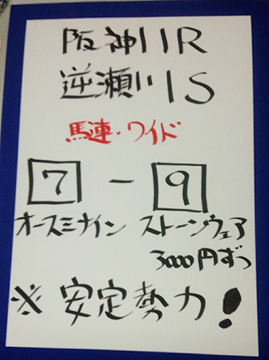 阪神11R
逆瀬川S
馬連・ワイド
7-9
オースミナイン ストーンウェア
3000円ずつ
※安定勢力!